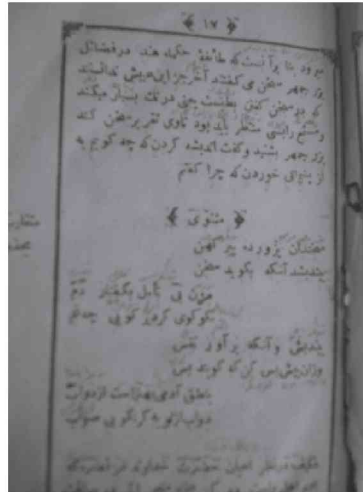 ﴿ ١٧ ﴾
آنست که طائفهٔ حکماء هند در فضائل
بزرجمهر سخن می گفتند آخر جز این عیبش ندانستند
که در سخن گفتن بطیئست یعنی درنگ بسیار میکند
و مستمع را بسی منتظر باید بود تا وی تقریر سخن کند
بزرجمهر بشنید و گفت اندیشه کردن که چه گویم به
از پشیمانی خوردن که چرا گفتم
﴿ مثنوی ﴾
سخندان پرورده پیر کهن
بیندیشد آنگه بگوید سخن
مزن بی تأمل بگفتار دم
نکو گوی گر دیر گویی چه غم
بیندیش و آنگه برآور نفس
وزان پیش بس کن که گویند بس
بنطق آدمی بهتر است از دواب
دواب از تو به گر نگویی صواب